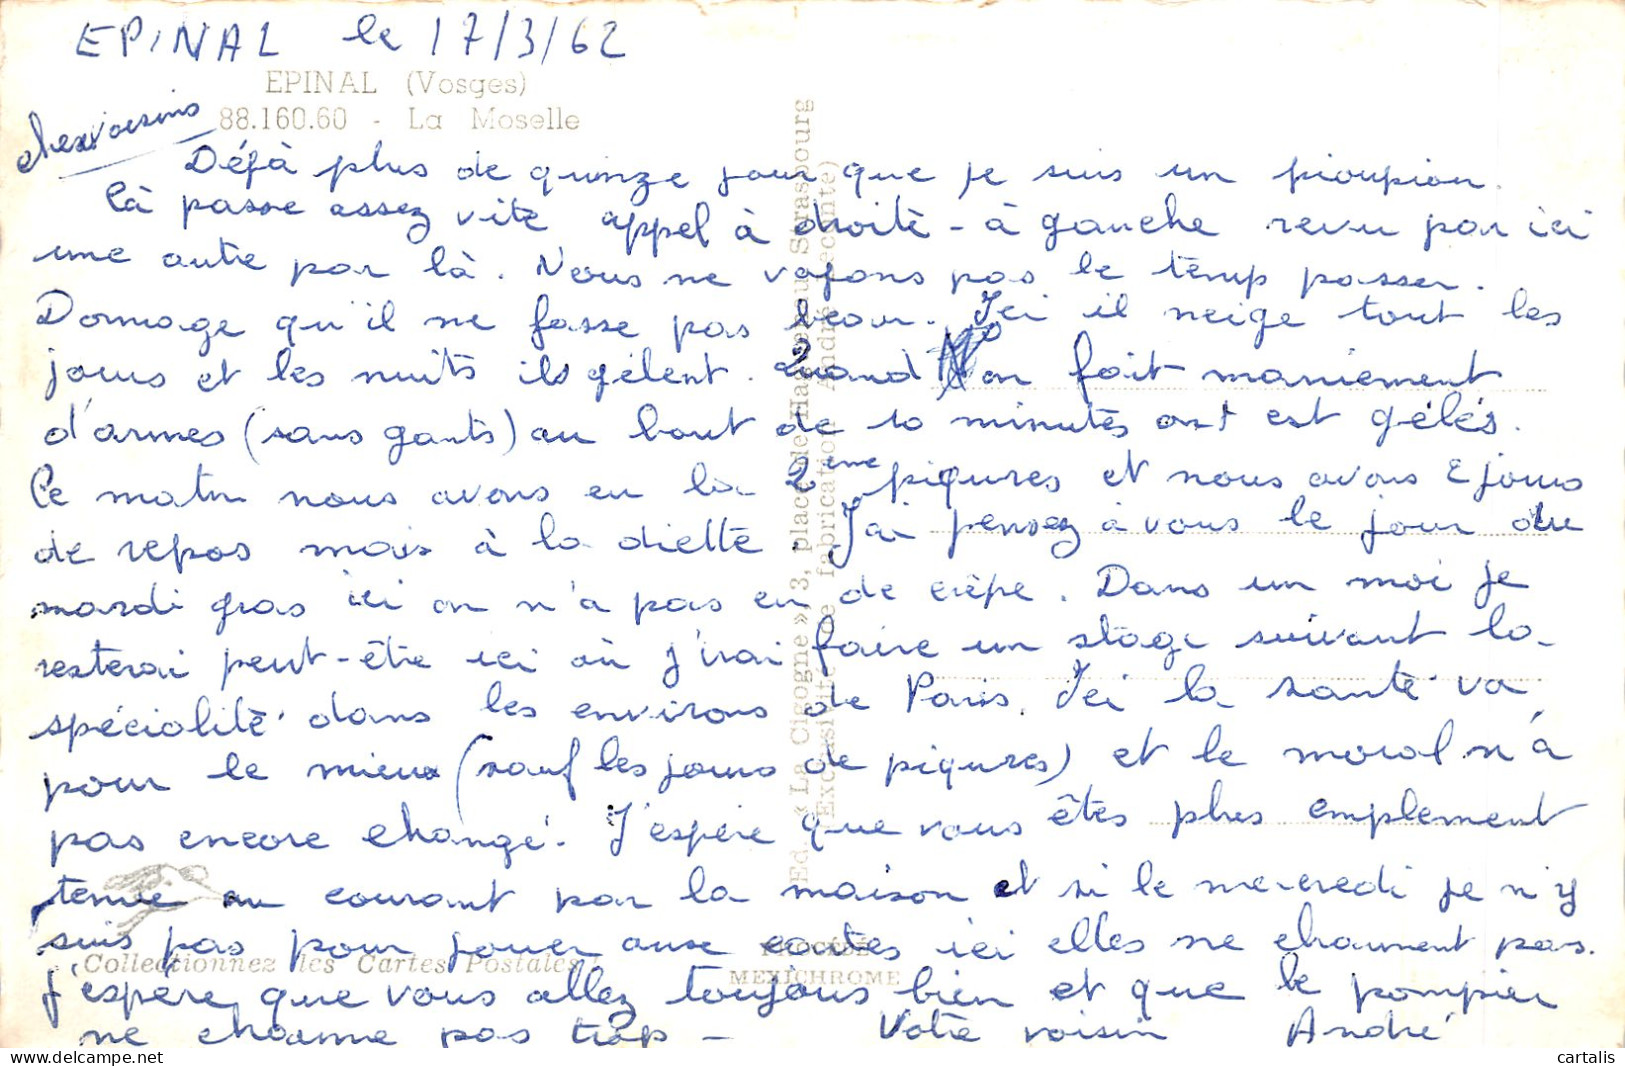 EPINAL le 17/3/62
EPINAL (Vosges)
88.160.60 - La Moselle
chers voisins
Déjà plus de quinze jour que je suis un pioupiou.
Cà passe assez vite appel à droite - à gauche revu par ici
une autre par là. Nous ne voyons pas le temp passer.
Domage qu'il ne fasse pas beau. Ici il neige tout les
jours et les nuits ils gèlent. Quand on fait maniement
d'armes (sans gants) au bout de 10 minutes ont est gélés.
Ce matin nous avons eu la 2ème piqures et nous avons 2 jours
de repos mais à la diette. J'ai pensez à vous le jour du
mardi gras ici on n'a pas eu de crèpe. Dans un moi je
resterai peut-être ici où j'irai faire un stage suivant la
spécialité dans les environs de Paris. Ici la santé va
pour le mieux (sauf les jours de piqures) et le moral n'à
pas encore changé. J'espère que vous êtes plus emplement
tenue au courant par la maison et si le mercredi je n'y
suis pas pour jouer aux cartes ici elles ne chaument pas.
J'espère que vous allez toujours bien et que le pompier
ne chaume pas trop - Votre voisin André
Collectionnez les Cartes Postales
PROCÉDÉ
MEXICHROME
Ed. « La Cigogne » 3, place de Haguenau Strasbourg
fabrication
cartalis